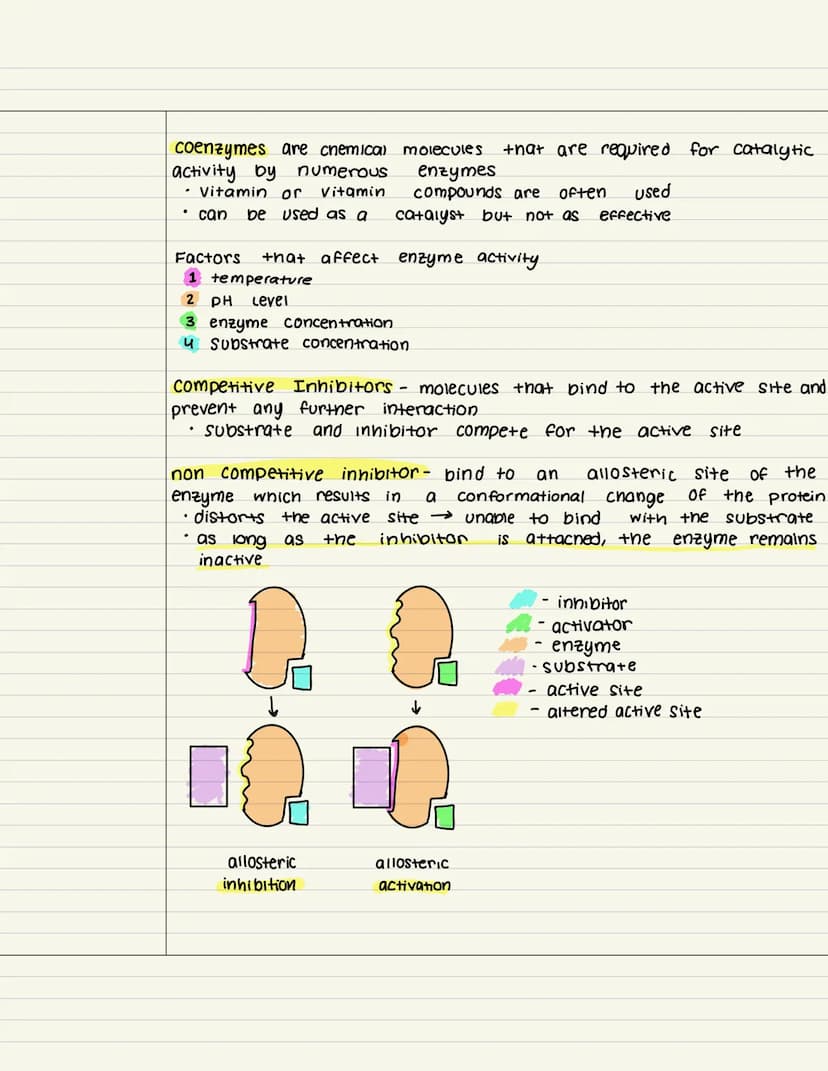 coenzymes are chemical molecules that are required for catalytic
activity by numerous enzymes
· vitamin or vitamin compounds are often used
· can be used as a catalyst but not as effective
Factors that affect enzyme activity
1 temperature
2 pH Level
3 enzyme concentration
4 substrate concentration
competitive Inhibitors - molecules that bind to the active site and
prevent any further interaction
· substrate and inhibitor compete for the active site
non competitive inhibitor - bind to an allosteric site of the
enzyme which results in a conformational change of the protein
· distorts the active site → unable to bind with the substrate
· as long as the inhibitor is attached, the enzyme remains
inactive
- inhibitor
- activator
- enzyme
- substrate
- active site
- altered active site
allosteric
inhibition
allosteric
activation